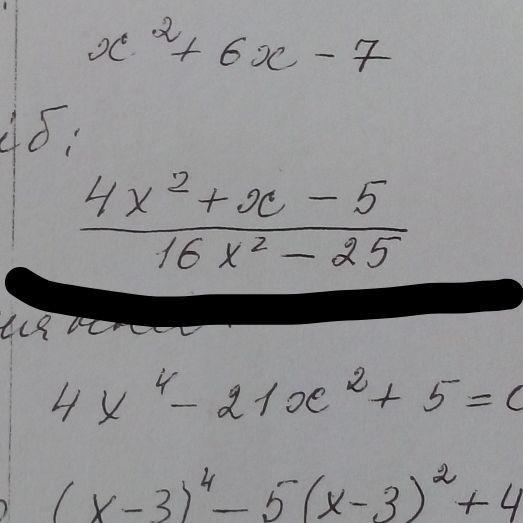 x² + 6x - 7
іб:
4x² + x - 5
16x² - 25
4x⁴ - 21x² + 5 =
(x-3)⁴ - 5(x-3)² + 4